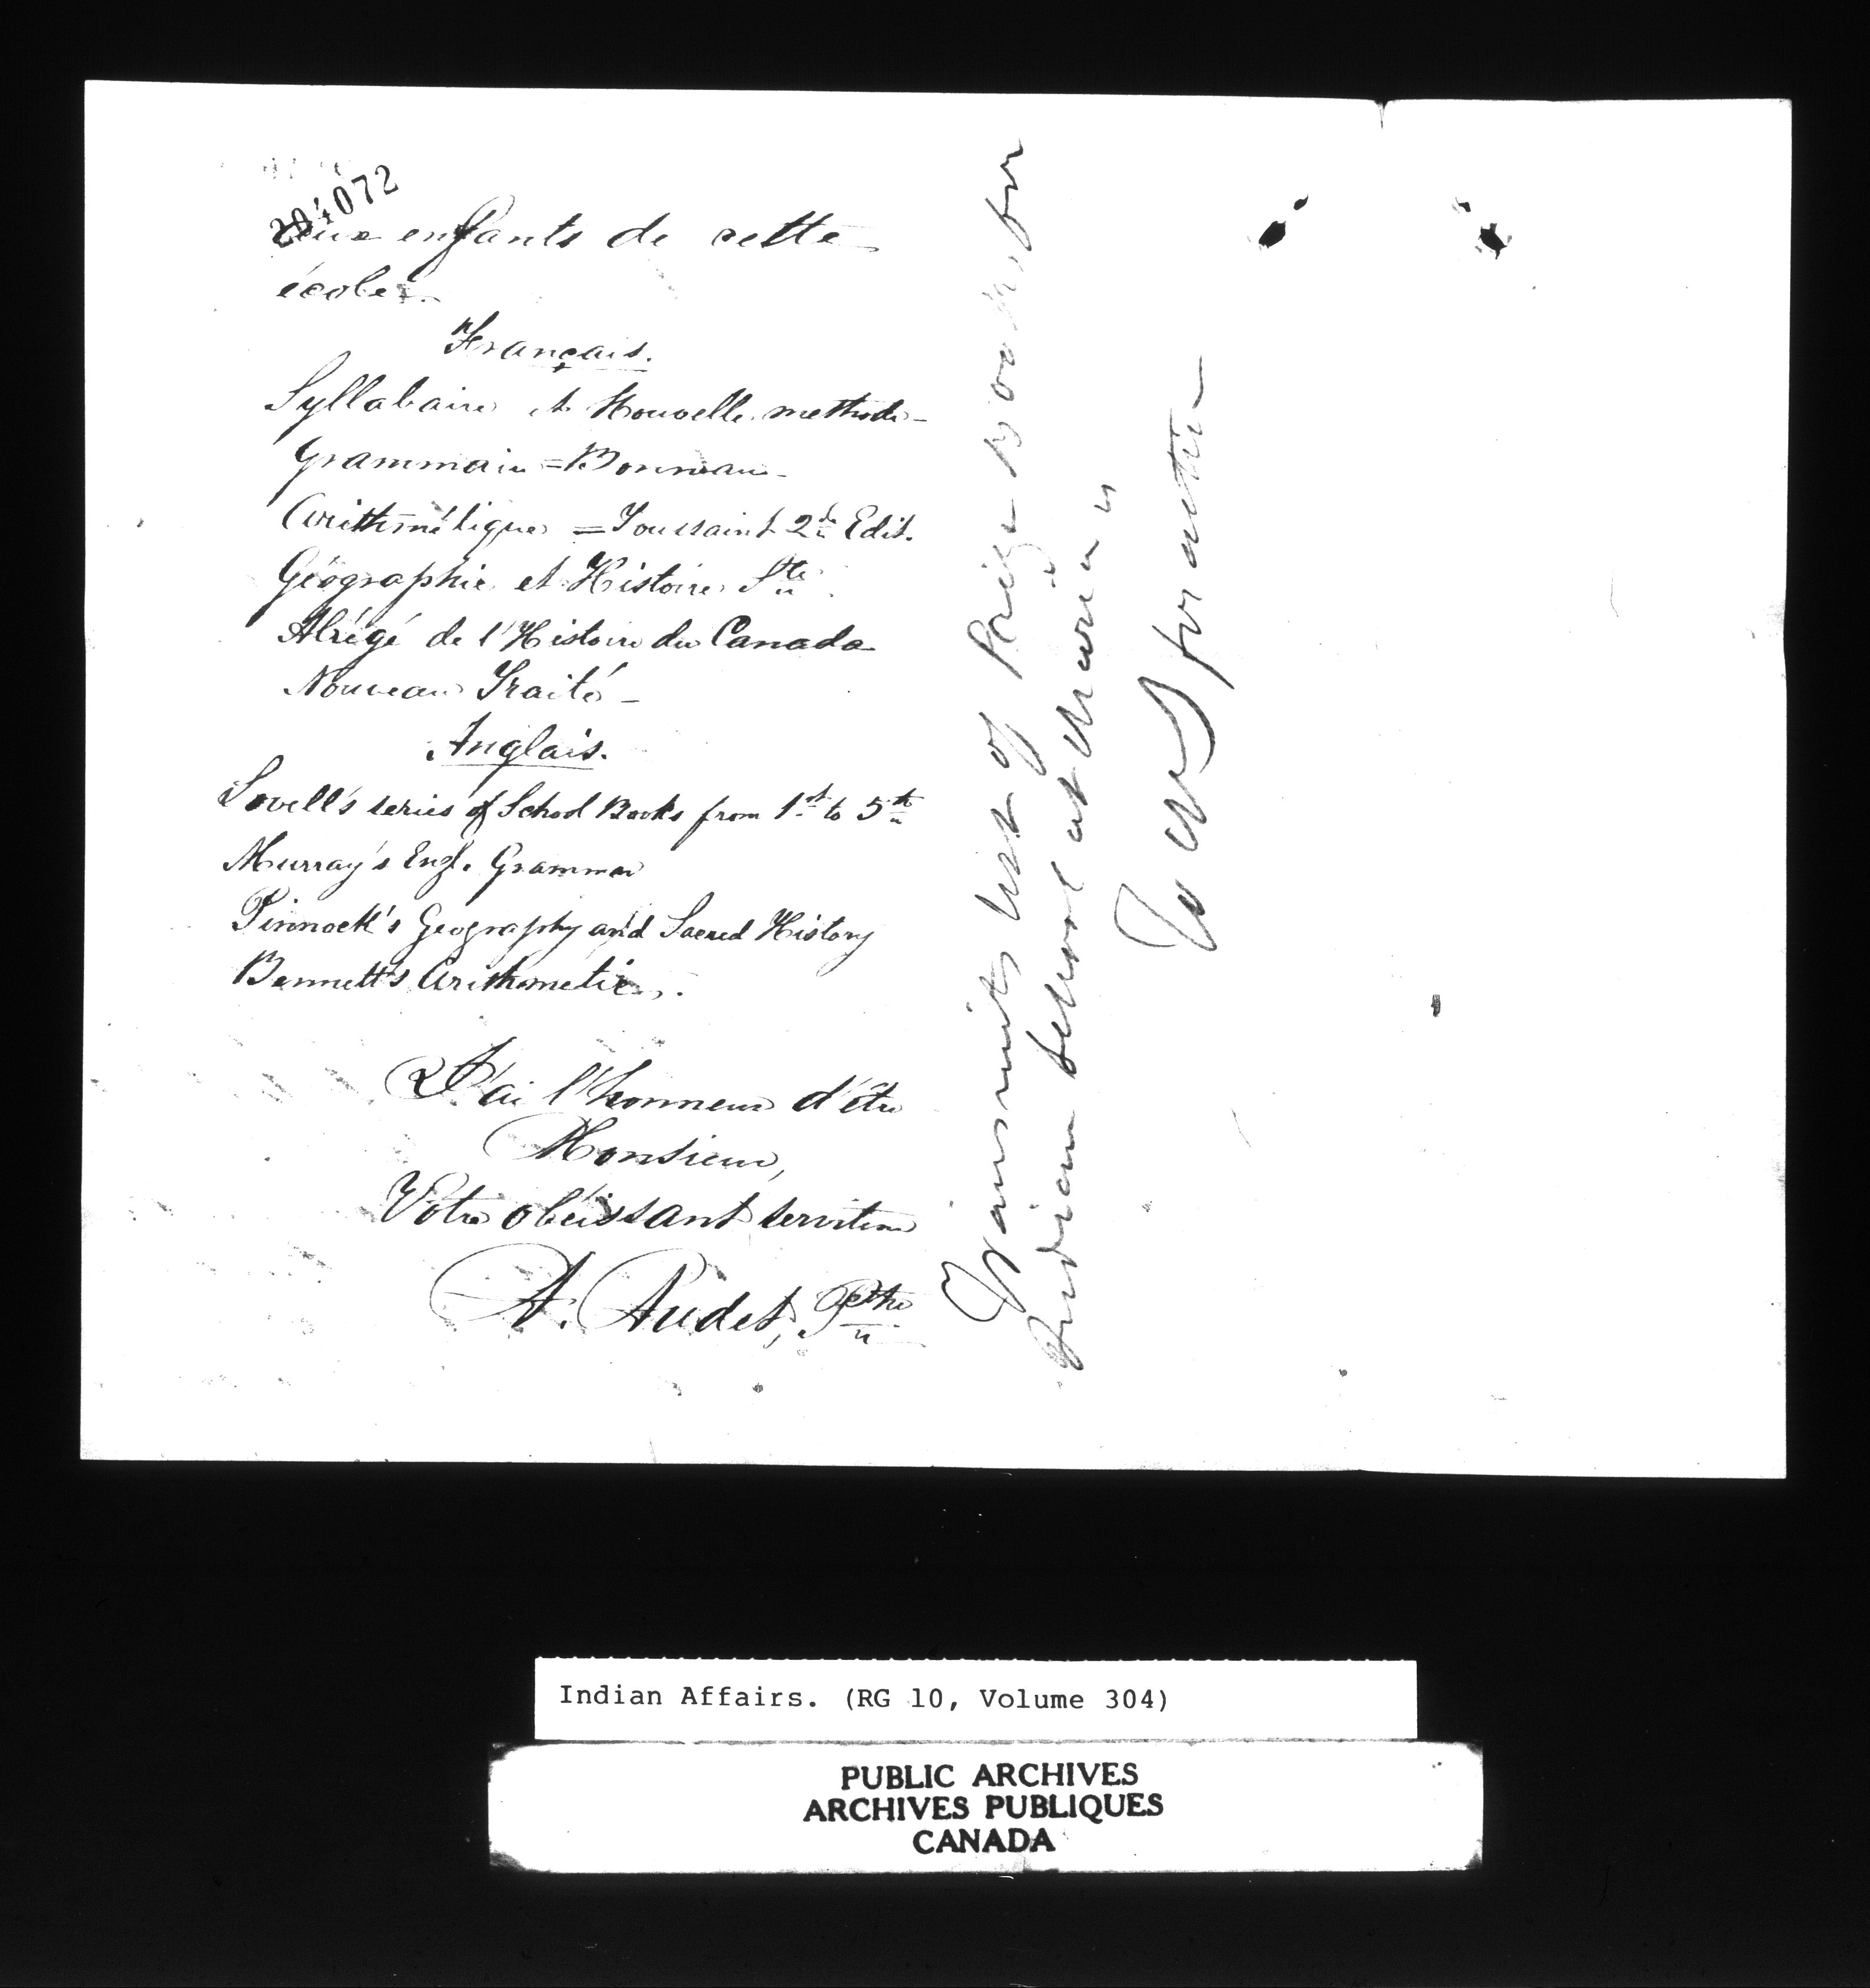 204072
aux enfants de cette
école.
Français.
Syllabaire et Nouvelle methode -
Grammaire = Bonneau -
Arithmétique = Toussaint 2de Edit.
Géographie et Histoire Ste.
Abrégé de l'Histoire du Canada
Nouveau Traité -
Anglais.
Lovell's series of School Books from 1st to 5th
Murray's Engl. Grammar
Pinnock's Geography and Sacred History
Bennett's Arithmetic.
J'ai l'honneur d'être
Monsieur,
Votre obéissant serviteur
A. Audet, Ptre
Transmits list of Prize Books for
Indian School at Maria
To WS for action
Indian Affairs. (RG 10, Volume 304)
PUBLIC ARCHIVES
ARCHIVES PUBLIQUES
CANADA